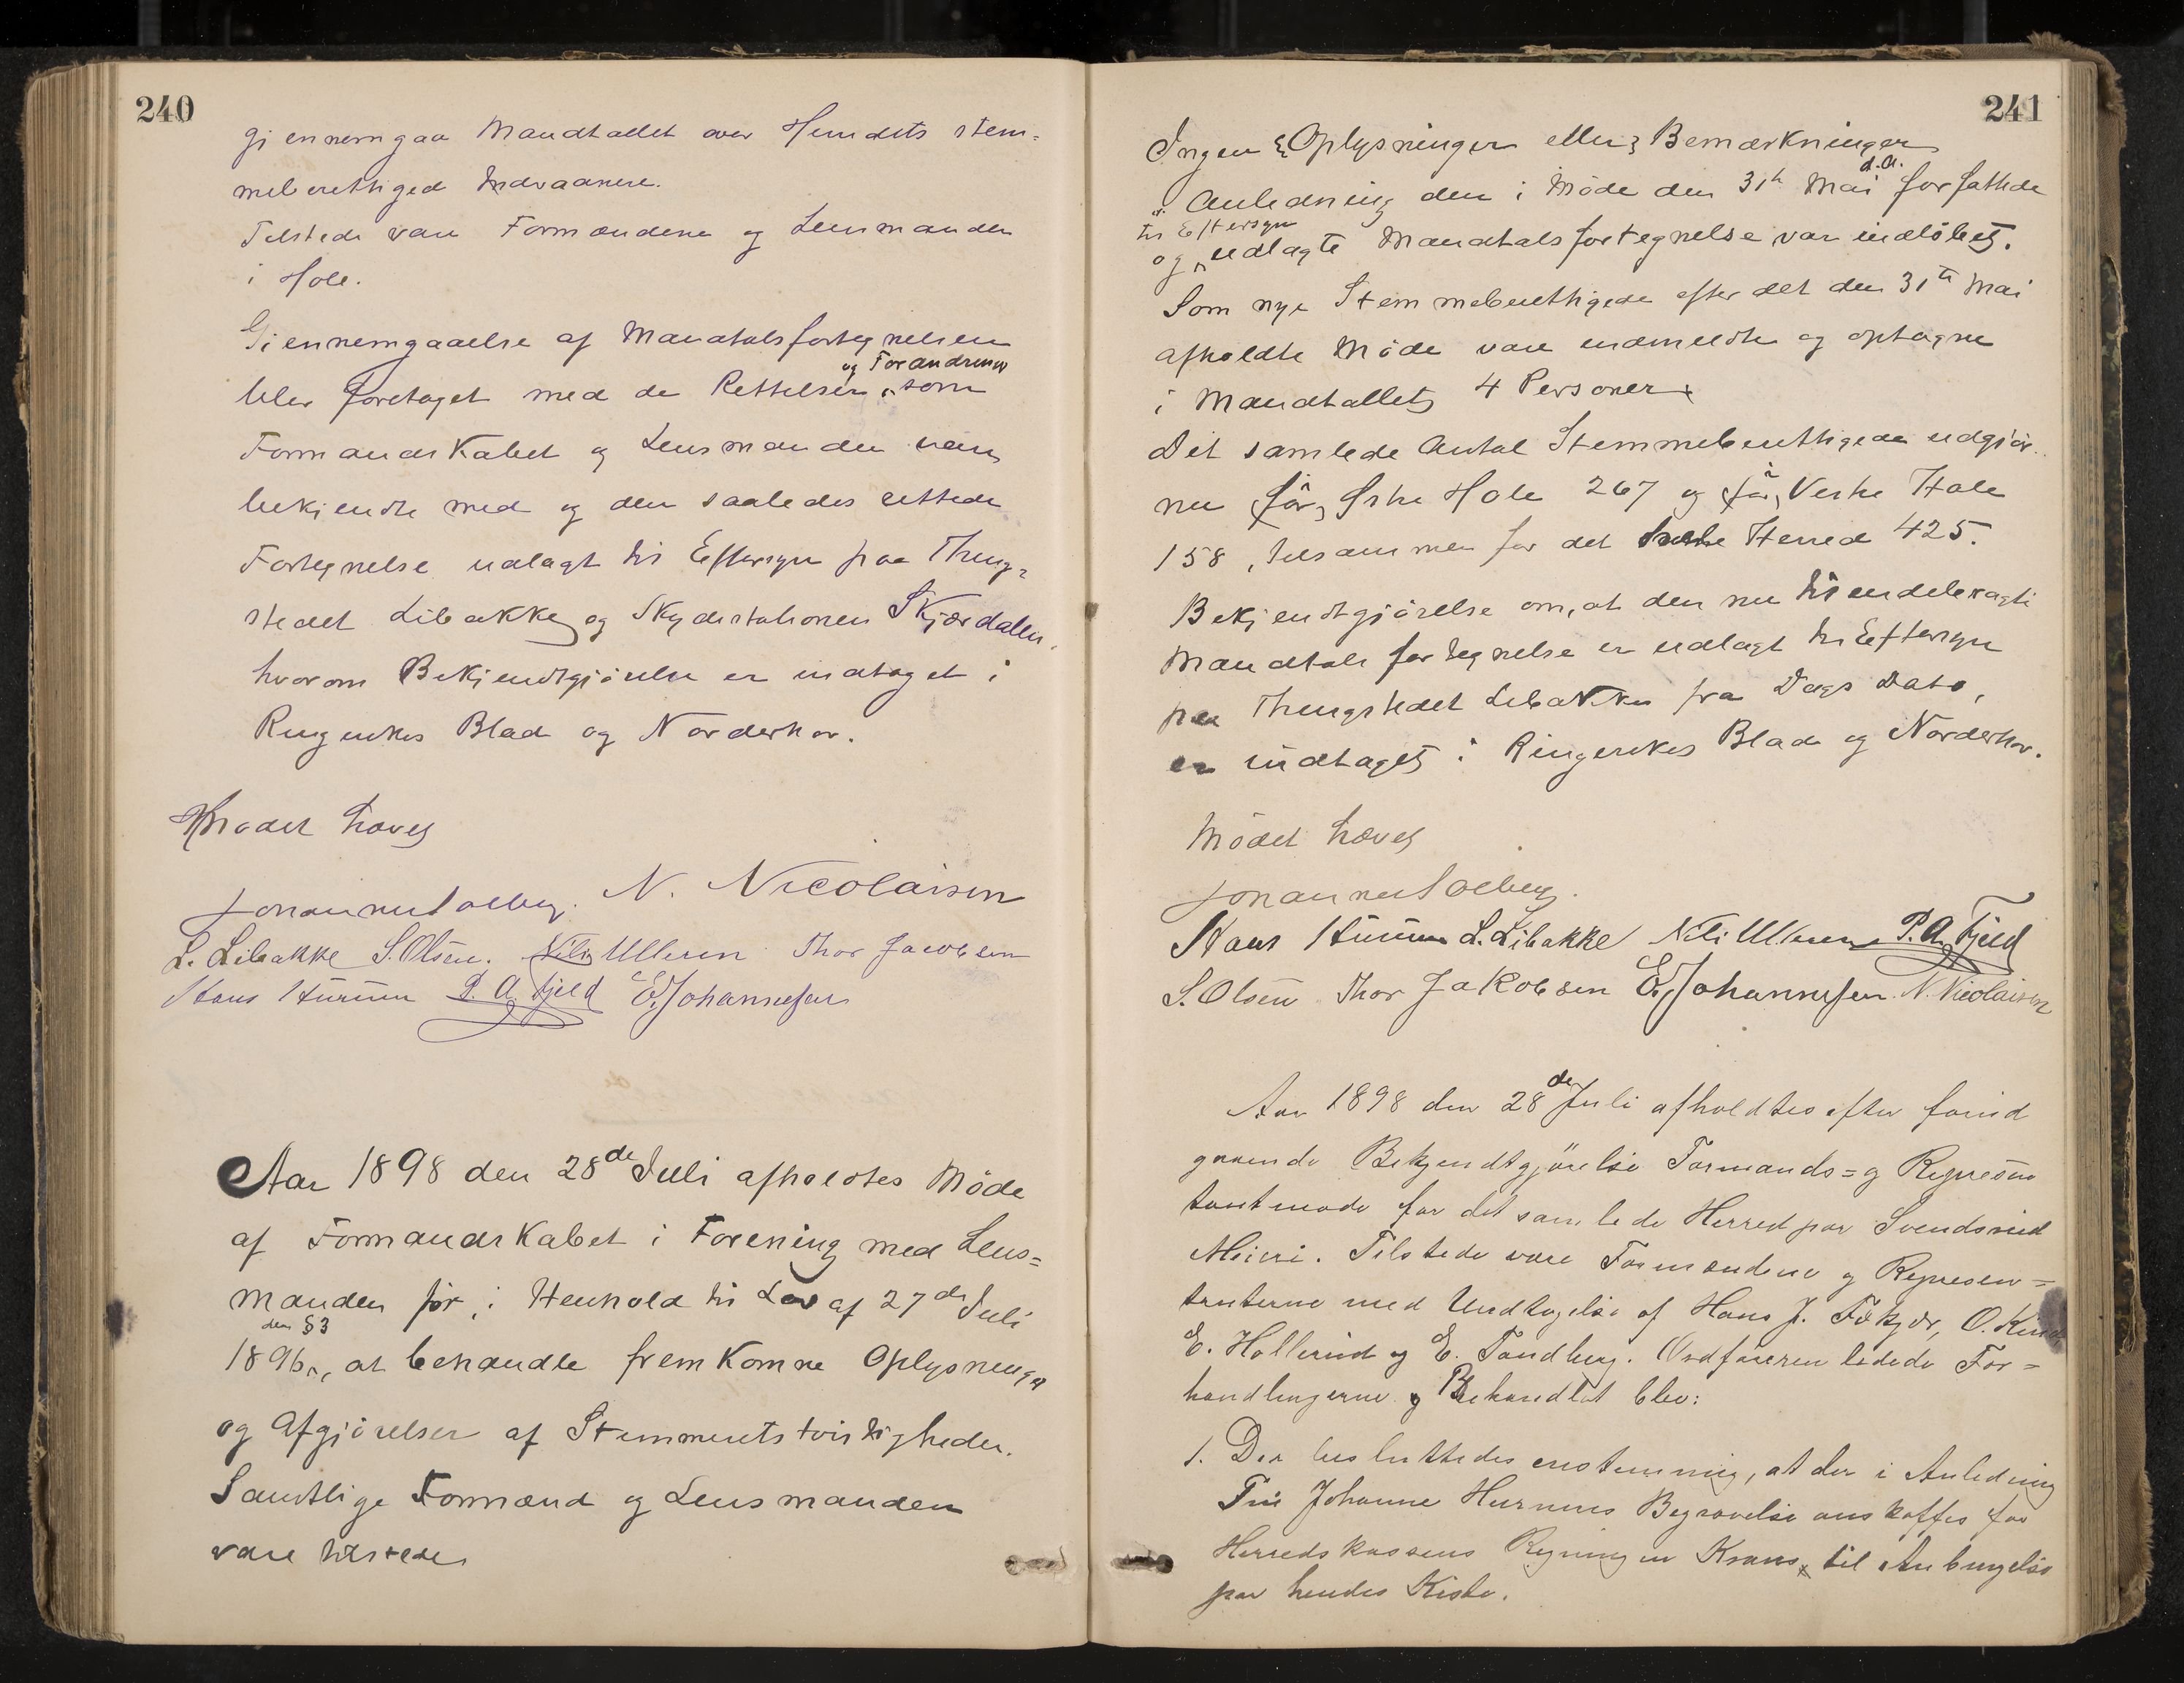 240
gjennemgaa Mandtallet over Herredets stem-
meberettiged Indvaanere.
Tilstede vare Formændene og Lensmanden
i Hole.
Gjennemgaaelse af Mandtalsfortegnelsen
og Forandringer
blev foretaget med de Rettelser som
Formandskabet og Lensmanden vare
bekjendte med og den saaledes rettede
Fortegnelse udlagt til Eftersyn paa Thing-
stedet Libakke og Skydsstationen Skjærdalen,
hvorom Bekjendtgjörelse er indtaget i
Ringerikes Blad og Norderhov.
Mödet hævet
Johannes Solberg. N. Nicolaisen
L. Libakke S. Olsen. Nils Ulleren Thor Jacobsen
Hans Hurum P. A. Fjeld E. Johannesen
Aar 1898 den 28de Juli afholdtes Möde
af Formandskabet i Forening med Lens-
manden for, i Henhold til Lov af 27de Juli
dens § 3
1896, at behandle fremkomne Oplysninger
og Afgjörelser af Stemmeretstvistigheder.
Samtlige Formænd og Lensmanden
vare tilstede
241
Ingen Oplysninger eller Bemærkninger
d.A.
i Anledning den i Möde den 31te Mai forfattede
til Eftersyn
og udlagte Mandtalsfortegnelse var indlöbet.
Som nye Stemmeberettigede efter det den 31te Mai
afholdte Möde vare indmeldte og optagne
i Mandtallet 4 Personer
Det samlede Antal Stemmeberettigede udgjör
nu för Östre Hole 267 og för Vestre Hole
158, tilsammen for det hele Herred 425.
Bekjendtgjörelse om, at den nu tilendebragte
Mandtalsfortegnelse er udlagt til Eftersyn
paa Thingstedet Libakke fra Dags Dato,
er indtaget i Ringerikes Blad og Norderhov.
Mödet hævet
Johannes Solberg.
Hans Hurum L. Libakke Nils Ulleren P. A. Fjeld
S. Olsen Thor Jakobsen E. Johannesen N. Nicolaisen
Aar 1898 den 28de Juli afholdtes efter forud
gaaende Bekjendtgjörelse Formands- og Repræsen
tantmöde for det samlede Herred paa Svendsrud
Meieri. Tilstede vare Formændene og Represen-
tanterne med Undtagelse af Hans J. O.
E. Hollerud og E. Tandberg. Ordföreren ledede For-
handlingerne og Behandlet blev:
1. Der besluttedes enstemmig, at der i Anledning
Frü Johanne Hurums Begravelse anskaffes for
Herredskassens Regning en Krans til Anbringelse
paa hendes Kiste.